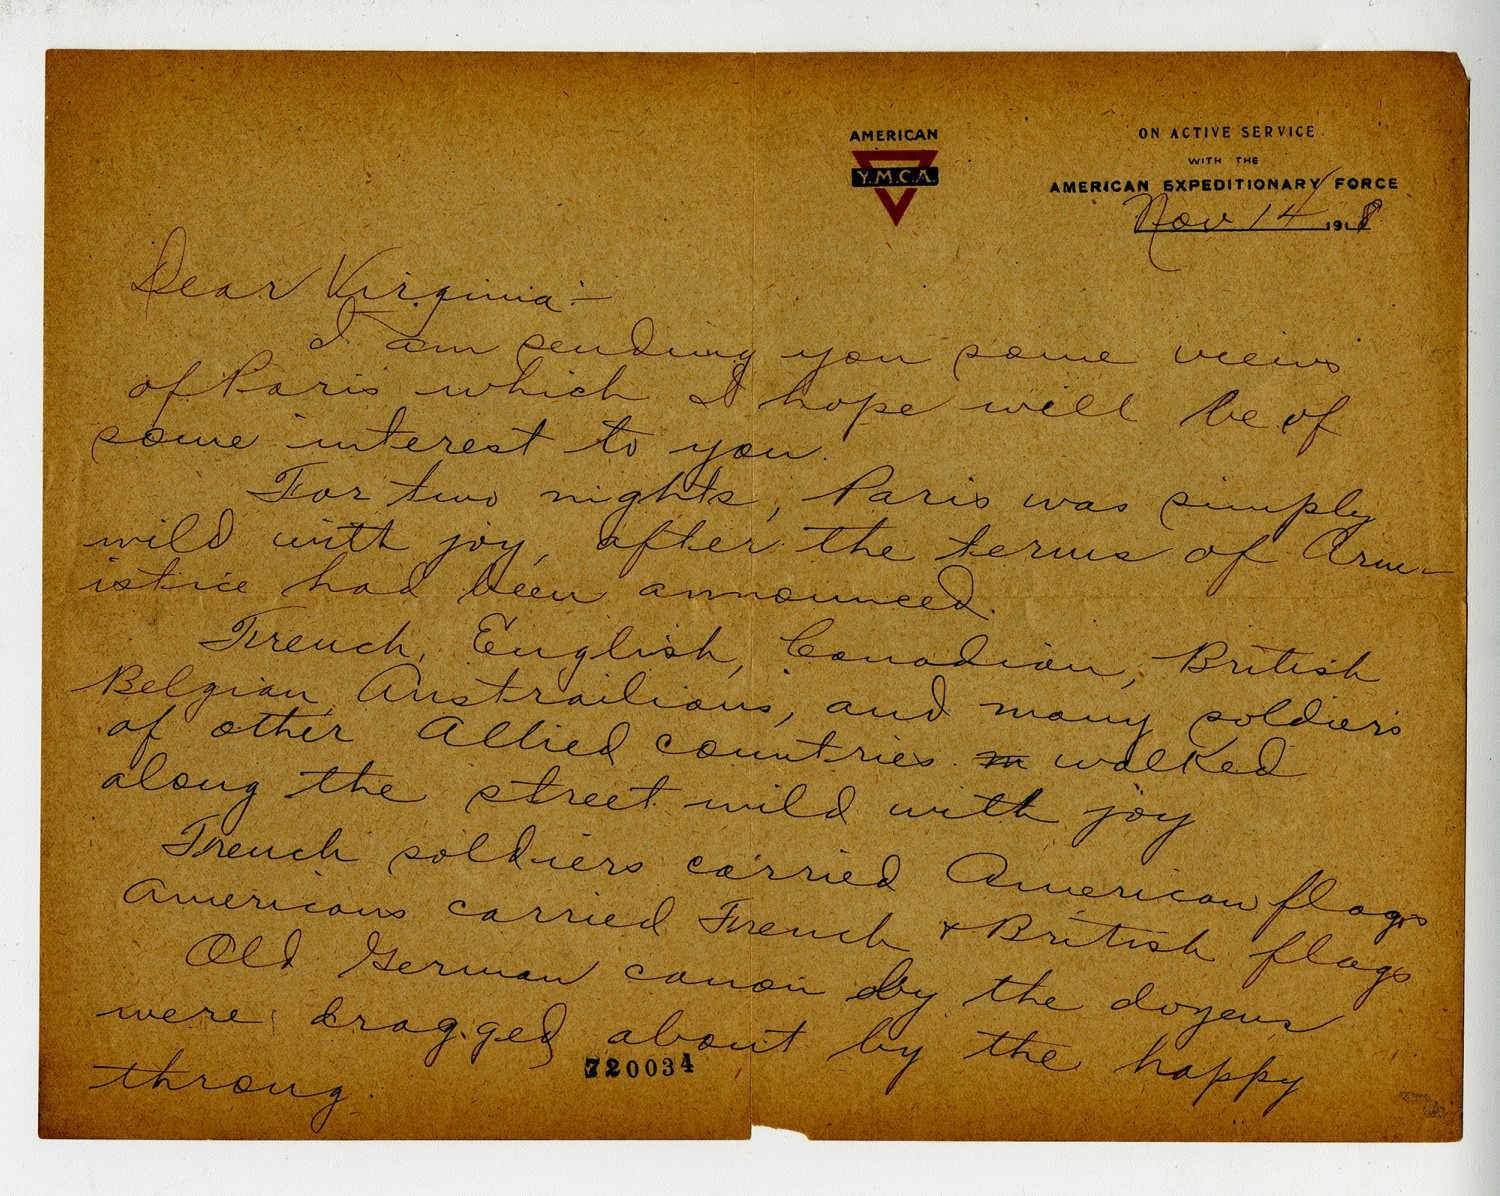 AMERICAN
Y.M.C.A.
ON ACTIVE SERVICE
WITH THE
AMERICAN EXPEDITIONARY FORCE
Nov 14 1918
Dear Virginia:-
I am sending you some views
of Paris which I hope will be of
some interest to you.
For two nights, Paris was simply
wild with joy, after the terms of Arm-
istice had been announced.
French, English, Canadian, British
Belgian, Austrailians, and many soldiers
of other Allied countries walked
along the street wild with joy
French soldiers carried American flags
Americans carried French & British flags
Old German canon by the dozens
were dragged about by the happy
throng.
720034